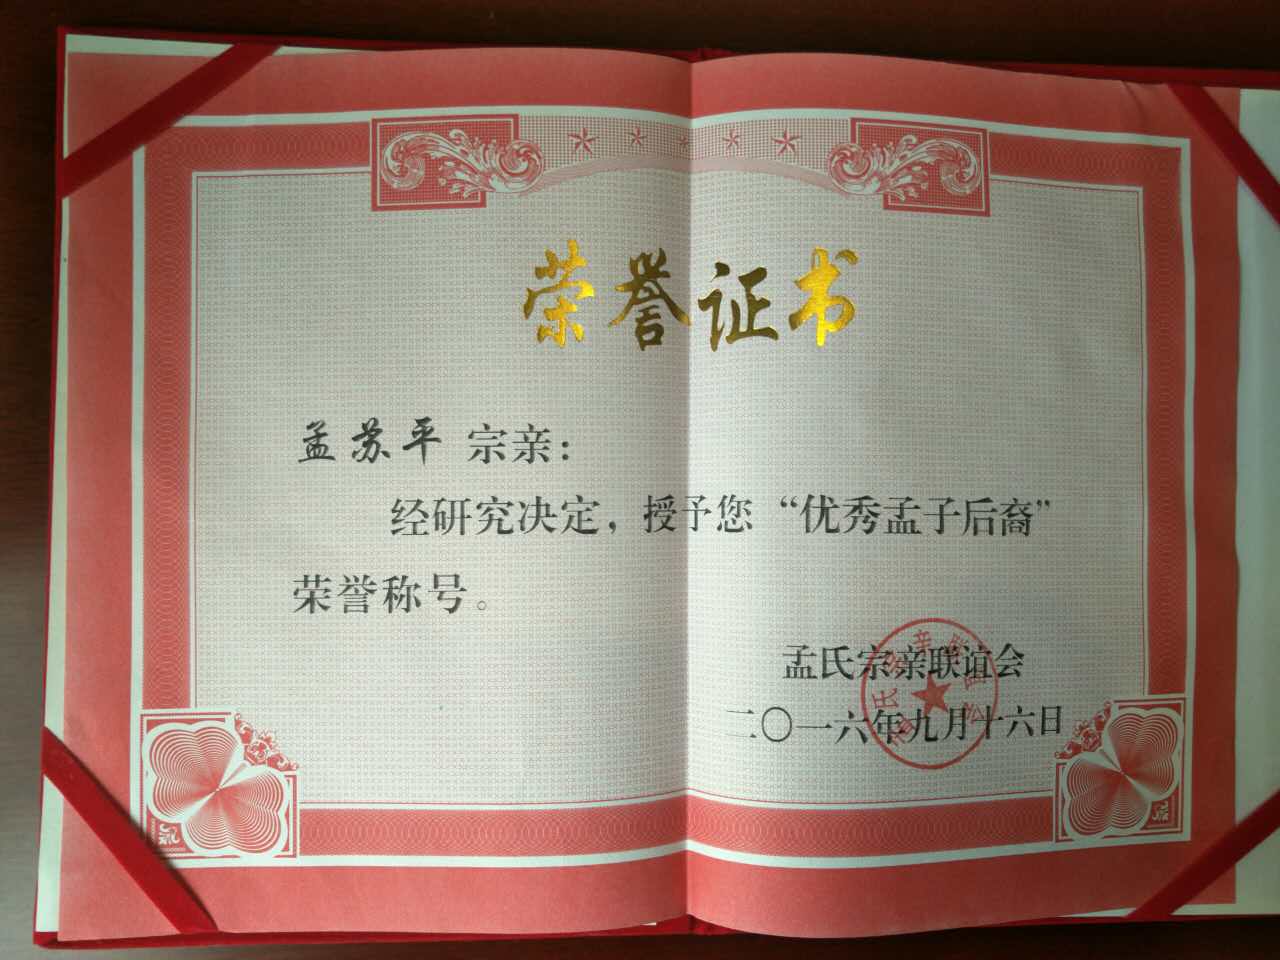 荣誉证书
孟苏平 宗亲:
经研究决定，授予您“优秀孟子后裔”
荣誉称号。
孟氏宗亲联谊会
二〇一六年九月十六日
孟氏宗亲联谊会